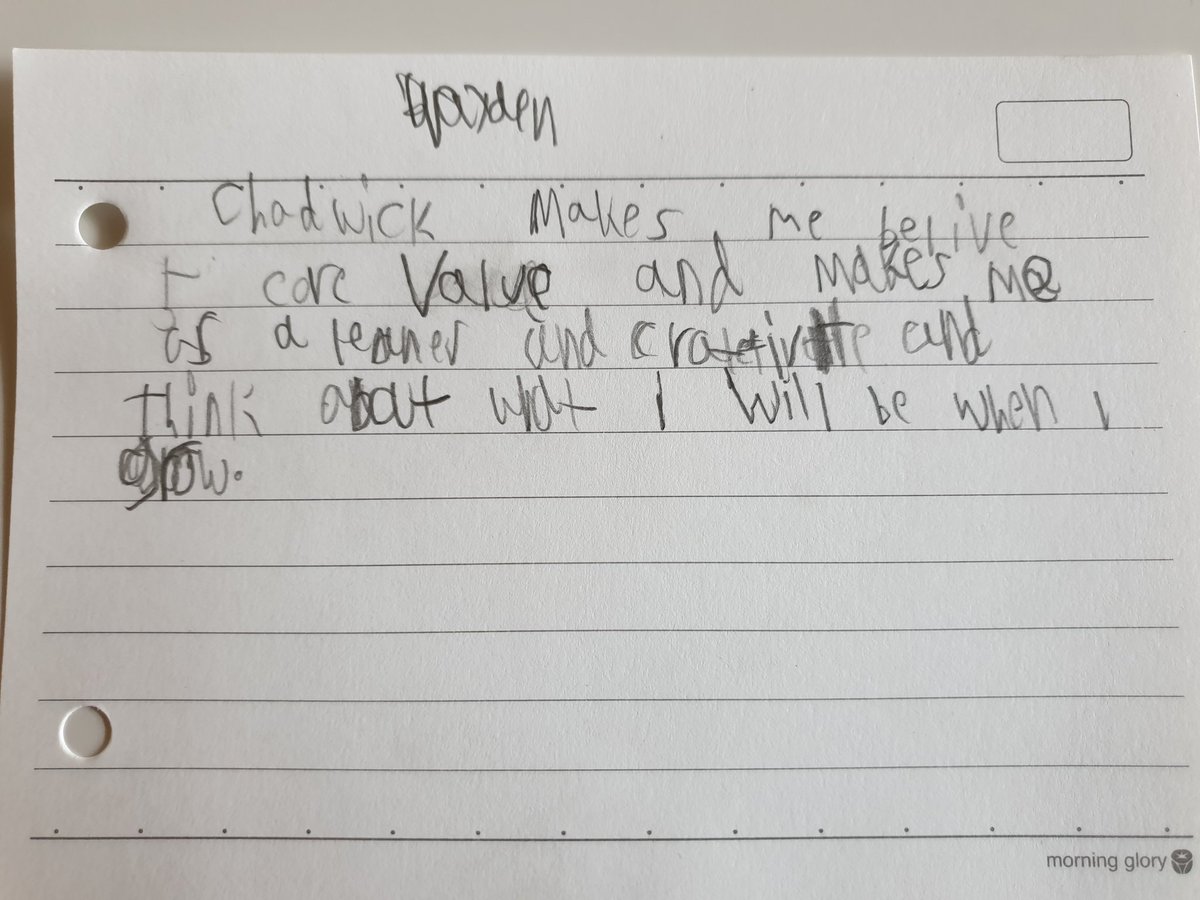 Chadwick Makes me belive
I core Value and makes me
is a leaner and crativite and
think about wat I will be when I
grow.
morning glory